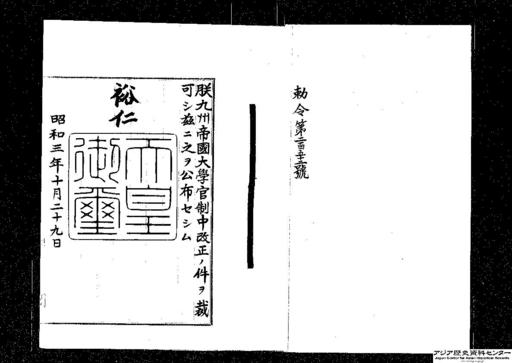 勅令第二百五十一號
朕九州帝國大學官制中改正ノ件ヲ裁
可シ茲ニ之ヲ公布セシム
裕仁
天皇
御璽
昭和三年十月二十九日
アジア歴史資料センター
Japan Center for Asian Historical Records